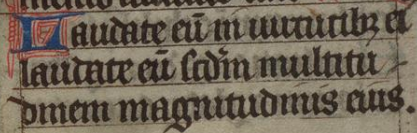 Laudate eu̅ in uirtutibꝫ ei
laudate eu̅ scd̅m multitu
dinem magnitudinis eius